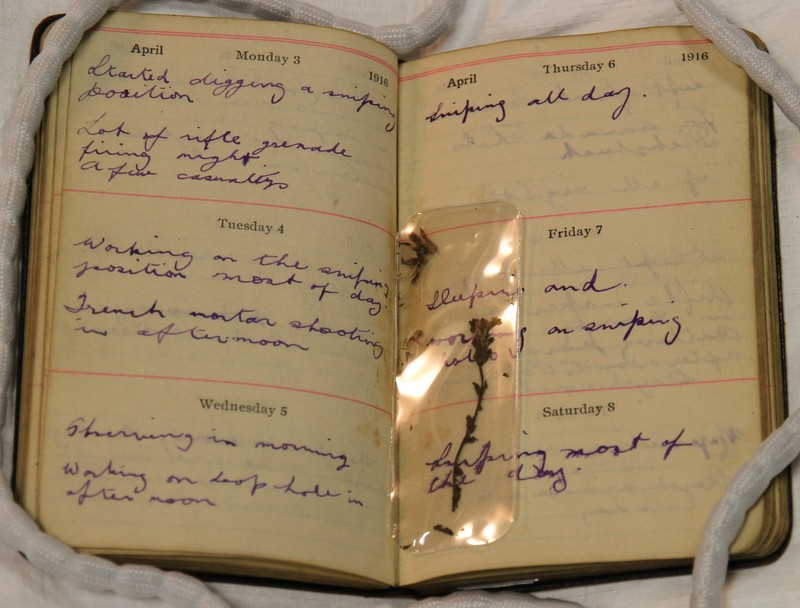 April Monday 3 1916
Started digging a sniping
position
Lot of rifle grenade
firing night
a few casualtys
Tuesday 4
Working on the sniping
position most of day
Trench mortar shooting
in afternoon
Wednesday 5
Observing in morning
Working on loop hole in
after noon
April Thursday 6 1916
Sniping all day.
Friday 7
Sleeping and.
working on sniping
Saturday 8
Sniping most of
the day.